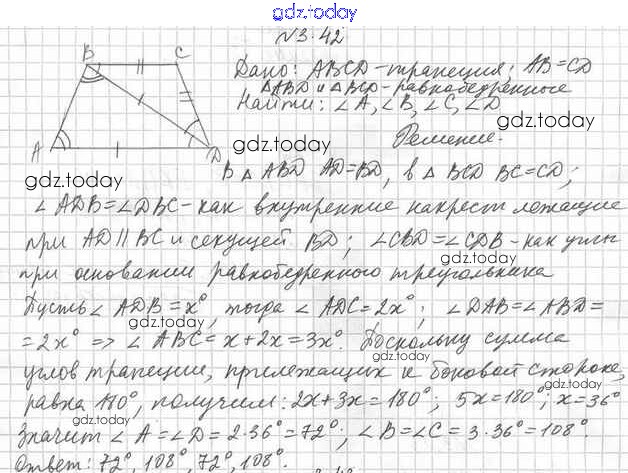 gdz.today
№3.42
B C
Дано: ABCD-трапеция; AB=CD
△ABD и △BCD-равнобедренные
Найти: ∠A, ∠B, ∠C, ∠D
gdz.today
gdz.today
Решение.
A D
gdz.today
В △ ABD AD=BD, в △ BCD BC=CD;
∠ADB=∠DBC-как внутренние накрест лежащие
gdz.today
при AD∥BC и секущей BD; ∠CBD=∠CDB-как углы
при основании равнобедренного треугольника
Пусть ∠ ADB=x°, тогда ∠ ADC=2x°; ∠DAB=∠ABD=
gdz.today
=2x° => ∠ ABC=x+2x=3x°. Поскольку сумма
gdz.today
углов трапеции, прилежащих к боковой стороне,
gdz.today
равна 180°, получим: 2x+3x=180°; 5x=180°; x=36°
gdz.today
Значит ∠ A=∠D=2·36°=72°; ∠B=∠C=3·36°=108°.
gdz.today
Ответ: 72°, 108°, 72°, 108°.